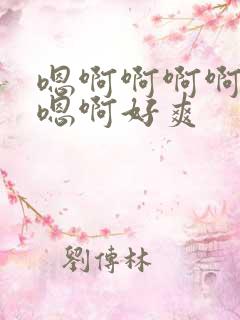 嗯啊啊啊啊
嗯啊好爽
劉傳林